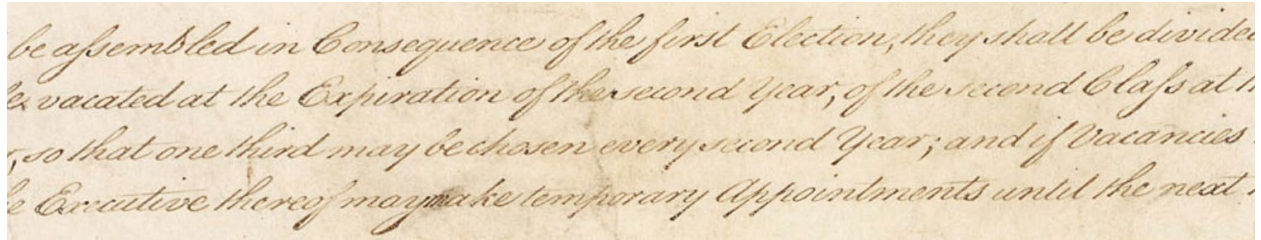 be aſsembled in Consequence of the first Election, they shall be divided
be vacated at the Expiration of the second Year, of the second Claſs at th
r, so that one third may be chosen every second Year; and if Vacancies
e Executive thereof may make temporary Appointments until the next